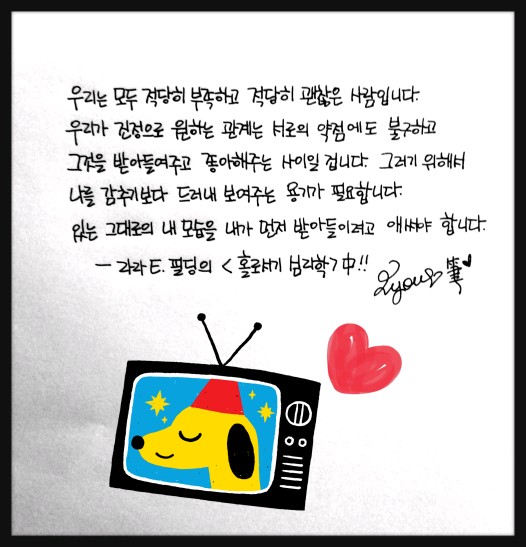 우리는 모두 적당히 부족하고 적당히 괜찮은 사람입니다.
우리가 진정으로 원하는 관계는 서로의 약점에도 불구하고
그것을 받아들여주고 좋아해주는 사이일 겁니다. 그러기 위해서
나를 감추기보다 드러내 보여주는 용기가 필요합니다.
있는 그대로의 내 모습을 내가 먼저 받아들이려고 애써야 합니다.
- 라라 E. 필딩의 < 홀로서기 심리학 > 中!!
筆